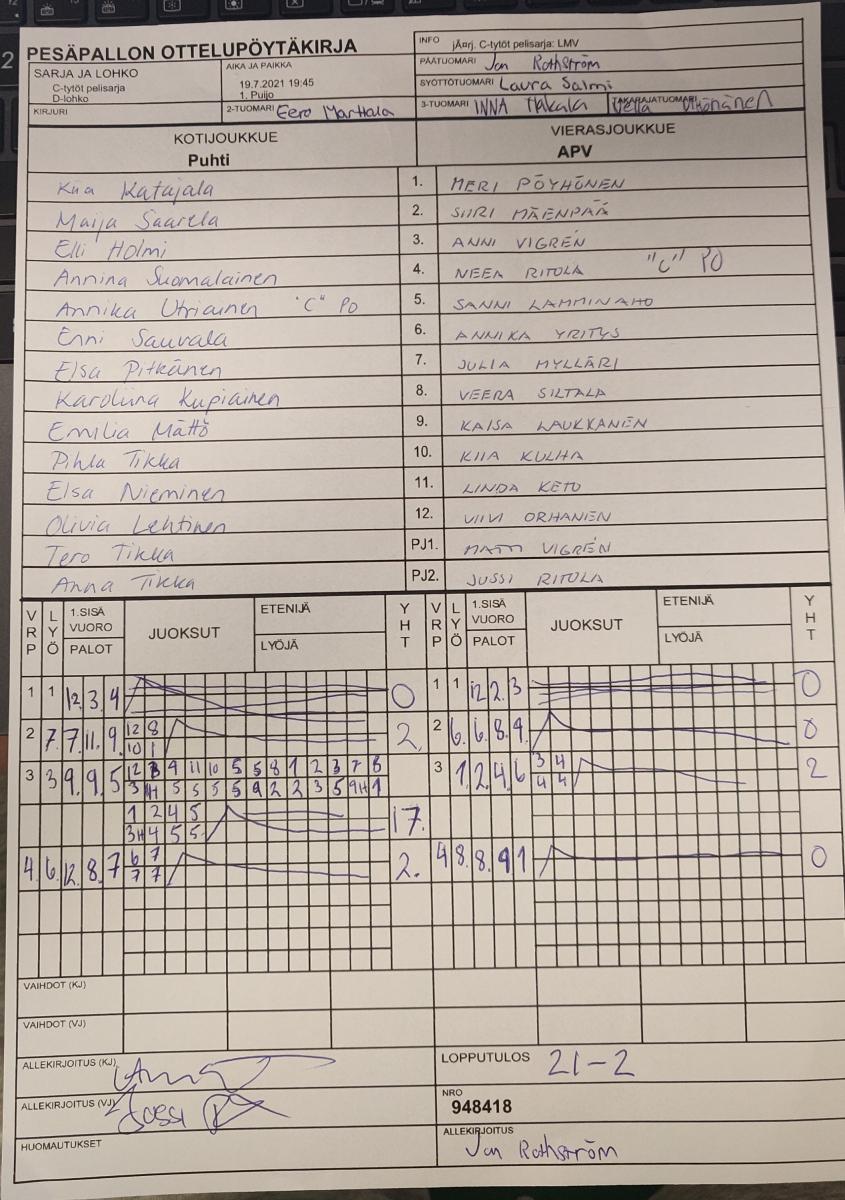 PESÄPALLON OTTELUPÖYTÄKIRJA
INFO jÄarj. C-tytöt pelisarja: LMV
PÄÄTUOMARI Jon Rothström
SARJA JA LOHKO
C-tytöt pelisarja
D-lohko
AIKA JA PAIKKA
19.7.2021 19:45
1. Puijo
SYÖTTÖTUOMARI Laura Salmi
KIRJURI
2-TUOMARI Eero Marttala
3-TUOMARI INNA Hakala
KOTIJOUKKUE
Puhti
VIERASJOUKKUE
APV
Kiia Katajala 1. MERI PÖYHÖNEN
Maija Saarela 2. SIIRI MÄENPÄÄ
Elli Holmi 3. ANNI VIGRÉN
Annina Suomalainen 4. NEEA RITOLA "C" PO
Annika Utriainen "C" Po 5. SANNI LAMMINAHO
Enni Sauvala 6. ANNIKA YRITYS
Elsa Pitkänen 7. JULIA MYLLÄRI
Karoliina Kupiainen 8. VEERA SILTALA
Emilia Mättö 9. KAISA LAUKKANEN
Pihla Tikka 10. KIIA KULHA
Elsa Nieminen 11. LINDA KETO
Olivia Lehtinen 12. VIIVI ORHANEN
Tero Tikka PJ1. MATTI VIGRÉN
Anna Tikka PJ2. JUSSI RITOLA
VRP LYÖ 1.SISÄ VUORO PALOT JUOKSUT ETENIJÄ LYÖJÄ YHT VRP LYÖ 1.SISÄ VUORO PALOT JUOKSUT ETENIJÄ LYÖJÄ YHT
1 1 12. 3. 4 0 1 1 12 2. 3 0
2 7. 7. 11. 9. 12 8 2. 2 6. 6. 8. 9. 0
10 1
3 3 9. 9. 5 12 3 9 11 10 5 5 8 1 2 3 7 8 3 1. 2. 4. 6 3 4 2
3 H 5 5 5 5 9 2 2 3 5 9H 1 4 4
1 2 4 5 17.
3H 4 5 5
4. 6. 12. 8. 7 6 7 2. 4 8. 8. 9 1 0
7 7
VAIHDOT (KJ)
VAIHDOT (VJ)
ALLEKIRJOITUS (KJ)
LOPPUTULOS 21-2
ALLEKIRJOITUS (VJ) Jussi
NRO
948418
HUOMAUTUKSET
ALLEKIRJOITUS
Jon Rothström